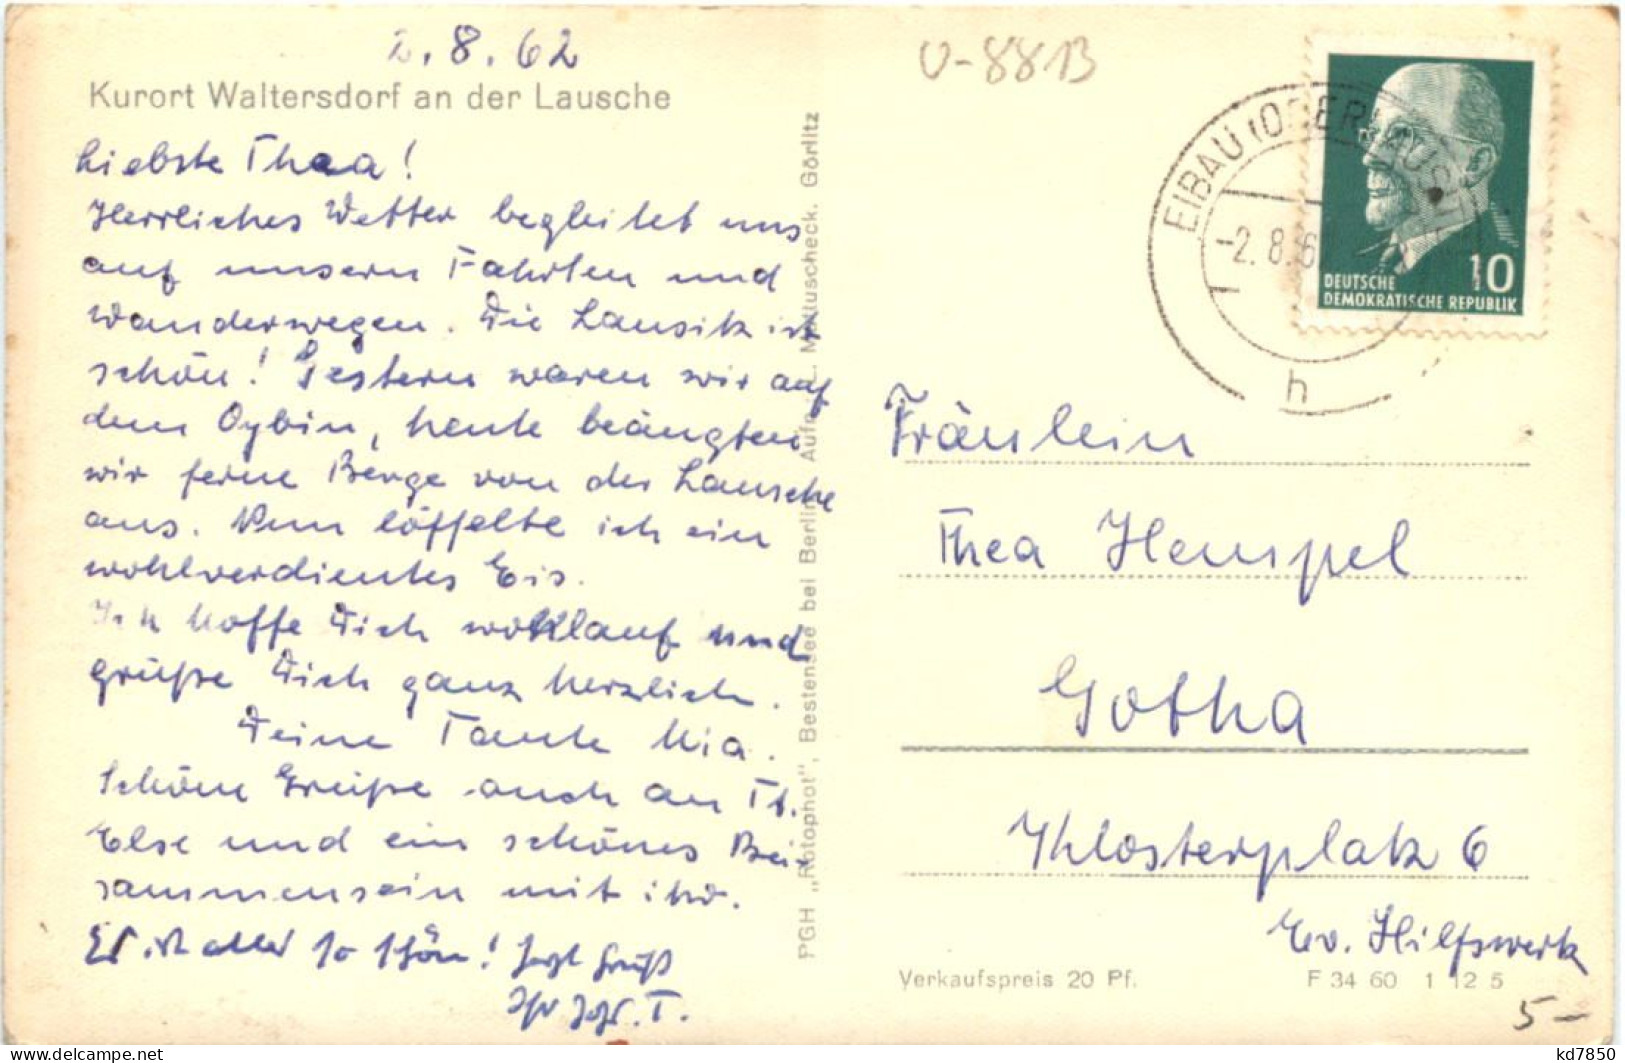 2.8.62
U-8813
Kurort Waltersdorf an der Lausche
Liebste Thea!
Herrliches Wetter begleitet uns
auf unsern Fahrten und
Wanderwegen. Die Lausitz ist
schön! Gestern waren wir auf
dem Oybin, heute beäugten
wir ferne Berge von der Lausche
aus. Nun löffelte ich ein
wohlverdientes Eis.
Ich hoffe Dich wohlauf und
grüße Dich ganz herzlich.
Deine Tante Mia.
Schöne Grüße auch an Tt.
Else und ein schönes Bei-
sammensein mit ihr.
Es ist alles so schön! Gruß
Ihr T.
PGH „Rotophot", Bestensee bei Berlin Aufn. Mattuscheck, Görlitz
EIBAU (OBERLAUSITZ)
-2.8.6
h
DEUTSCHE
DEMOKRATISCHE REPUBLIK
10
Fräulein
Thea Hempel
Gotha
Klosterplatz 6
Ev. Hilfswerk
Verkaufspreis 20 Pf.
F 34 60 1 12 5
5-
kd7850